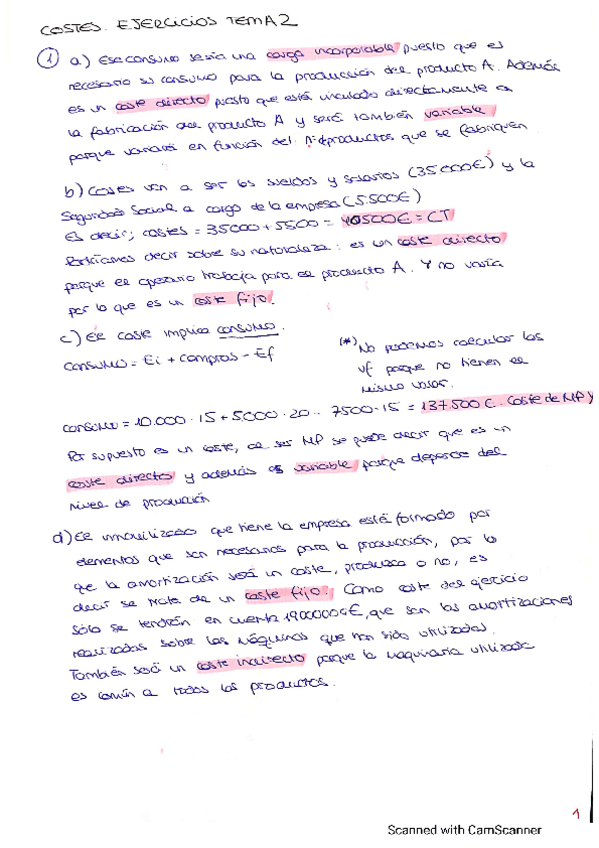 COSTES. EJERCICIOS TEMA 2
1 a) Ese consumo sería una carga incorporable puesto que es
necesario su consumo para la producción del producto A. Además
es un coste directo puesto que está vinculado directamente a
la fabricación del producto A y será también variable
porque variará en función del nº productos que se fabriquen
b) Costes van a ser los sueldos y salarios (35000€) y la
Seguridad Social a cargo de la empresa (5.500€)
Es decir; costes = 35000 + 5500 = 40500€ = CT
Podríamos decir sobre su naturaleza: es un coste directo
porque el operario trabaja para el producto A. Y no varía
por lo que es un coste fijo.
c) El coste implica consumo.
consumo = Ei + compras - Ef
(*) No podemos calcular las
vf porque no tienen el
mismo valor.
consumo = 10.000 · 15 + 5000 · 20 - 7500 · 15 = 137500 €. Coste de MP y
Por supuesto es un coste, al ser MP se puede decir que es un
coste directo y además es variable porque depende del
nivel de producción
d) El inmovilizado que tiene la empresa está formado por
elementos que son necesarios para la producción, por lo
que la amortización será un coste, produzca o no, es
decir se trata de un coste fijo. Como coste del ejercicio
sólo se tendrán en cuenta 1900000€, que son las amortizaciones
realizadas sobre las máquinas que han sido utilizadas.
También será un coste indirecto porque la maquinaria utilizada
es común a todos los productos.
1
Scanned with CamScanner